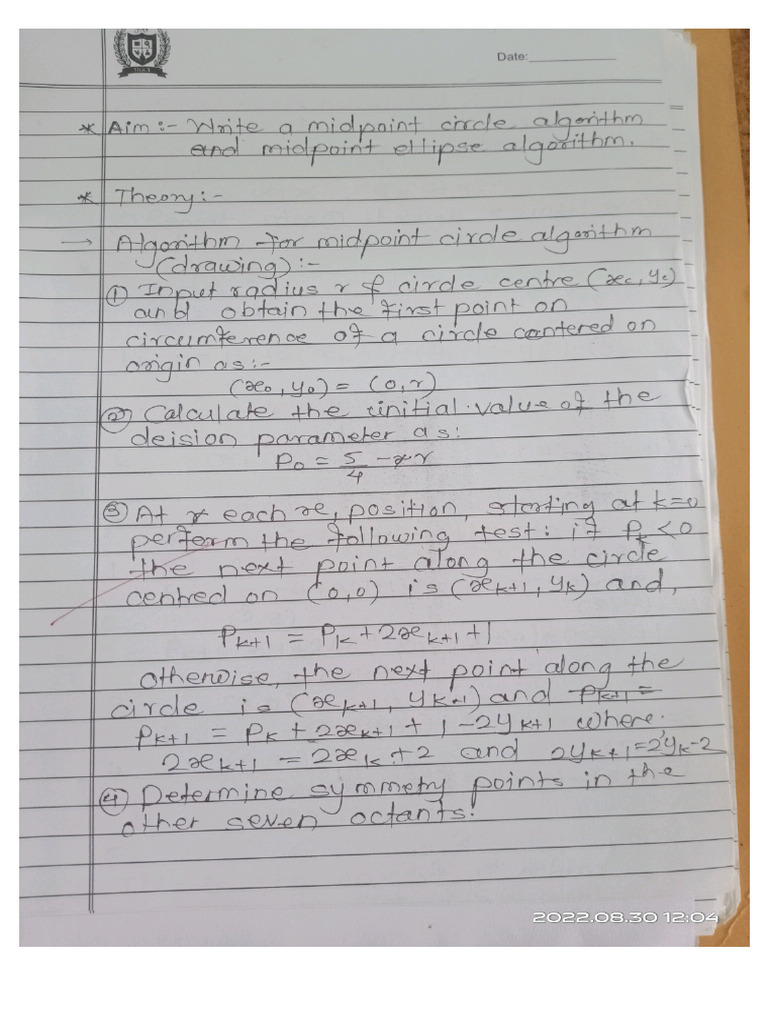 Date:
* Aim :- Write a midpoint circle algorithm
and midpoint ellipse algorithm.
* Theory :-
→ Algorithm for midpoint circle algorithm
(drawing) :-
① Input radius r & circle centre (xc, yc)
and obtain the first point on
circumference of a circle centered on
origin as:-
(x₀, y₀) = (0, r)
② Calculate the initial value of the
deision parameter as:
P₀ = 5/4 - r
③ At each x, position, starting at k=0
perform the following test: if Pₖ < 0
the next point along the circle
centred on (0,0) is (xₖ₊₁, yₖ) and,
Pₖ₊₁ = Pₖ + 2xₖ₊₁ + 1
otherwise, the next point along the
circle is (xₖ₊₁, yₖ₋₁) and Pₖ₊₁ =
Pₖ₊₁ = Pₖ + 2xₖ₊₁ + 1 - 2yₖ₊₁ where.
2xₖ₊₁ = 2xₖ + 2 and 2yₖ₊₁ = 2yₖ - 2
④ Determine symmetry points in the
other seven octants.
2022.08.30 12:04